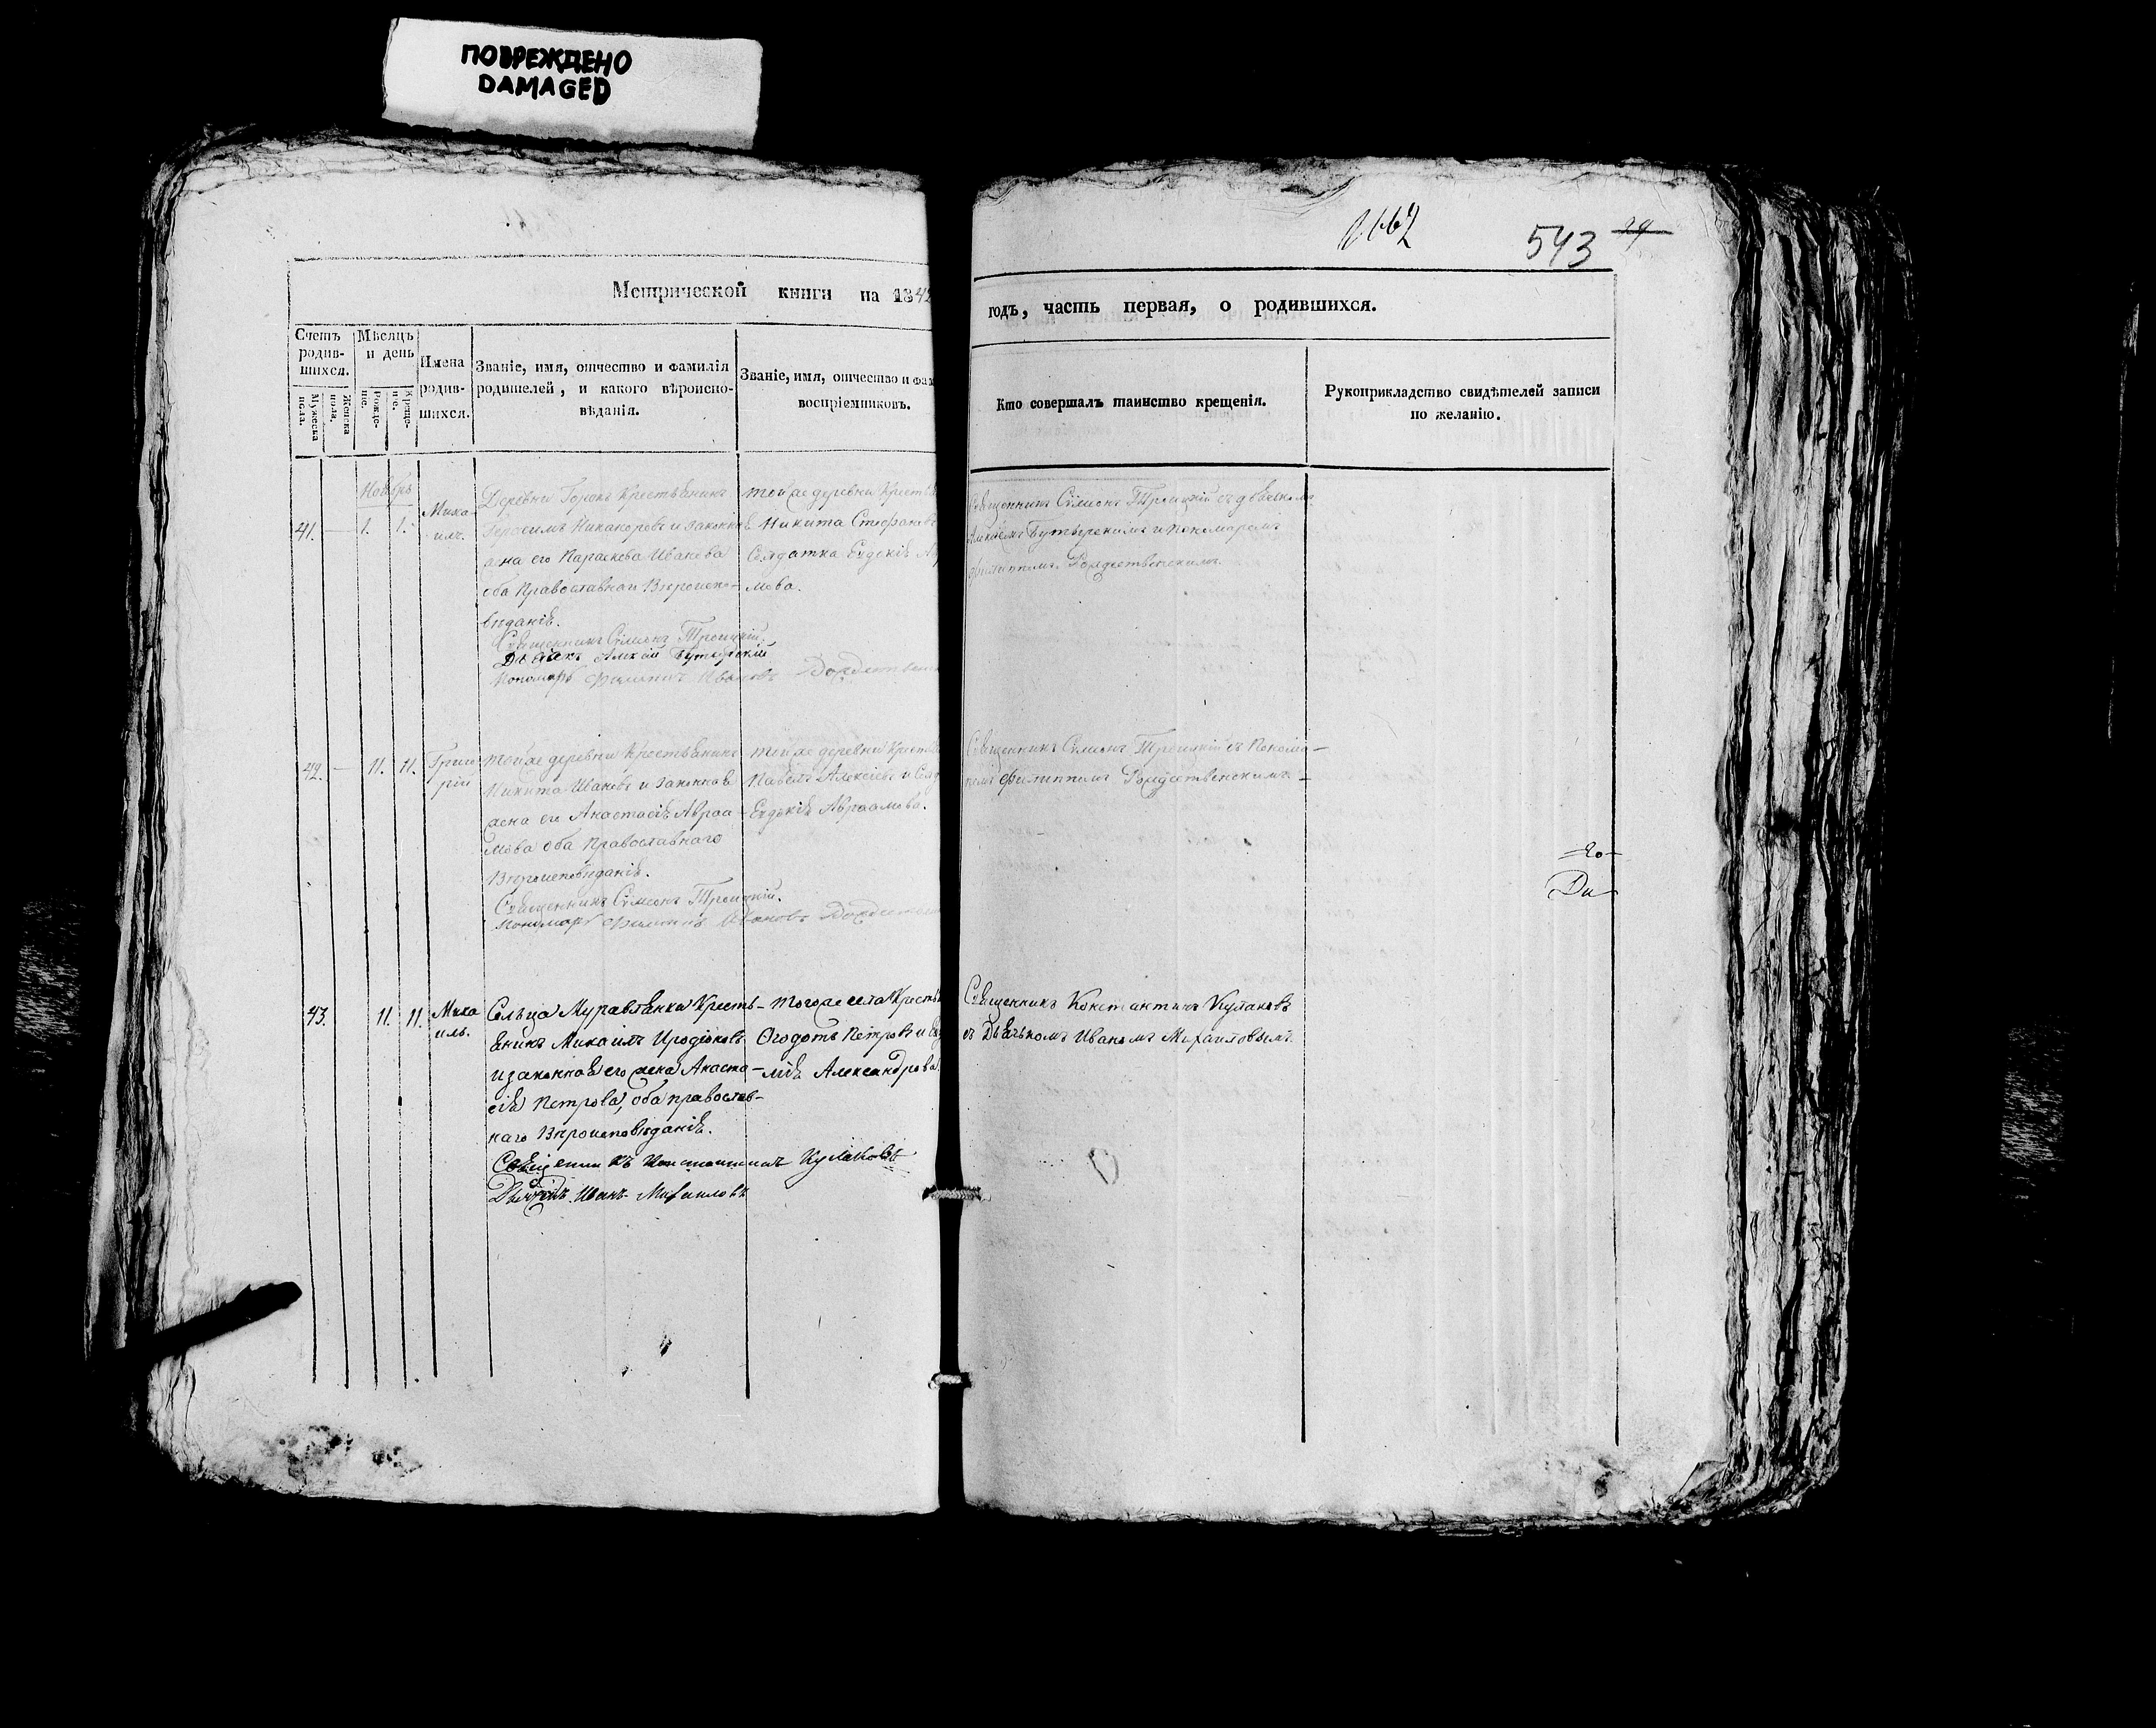 ПОВРЕЖДЕНО
DAMAGED
543
24
Метрической книги на 1842
годъ, часть первая, о родившихся.
Счетъ родив-
шихся.
Мужеска пола.
Женска пола.
Мѣсяцъ
и день
Рожде-
ніе.
Креще-
ніе.
Имена
родив-
шихся.
Званіе, имя, отчество и фамилія
родителей, и какого вѣроиспо-
вѣданія.
Званіе, имя, отчество и фам
воспріемниковъ.
Кто совершалъ таинство крещенія.
Рукоприкладство свидѣтелей записи
по желанію.
Ноябрь
41. — 1. 1.
Миха-
илъ.
Деревни Горокъ Крестьянинъ
Герасимъ Никаноровъ и законная
жена его Параскева Иванова
оба Православнаго Вѣроиспо-
вѣданія.
Священникъ Сѵмеонъ Троицкій.
Дьячекъ Алексій Бутырскій
Пономарь Филиппъ Ивановъ
той же деревни Крестья
Никита Стефановъ
Солдатка Евдокія
мова.
Священникъ Сѵмеонъ Троицкій съ дьячкомъ
Алексѣемъ Бутырскимъ и пономаремъ
Филиппомъ Рождественскимъ.
42. — 11. 11.
Григо
рій
той же деревни Крестьянинъ
Никита Ивановъ и законная
жена его Анастасія Авраа-
мова оба Православнаго
Вѣроисповѣданія.
Священникъ Сѵмеонъ Троицкій.
Пономарь Филиппъ Ивановъ
той же деревни Крестья
Павелъ Алексіевъ и Солд
Евдокія Авраамова.
Священникъ Сѵмеонъ Троицкій съ Понома-
ремъ Филиппомъ Рождественскимъ.
43. 11. 11.
Миха
илъ.
Сельца Муравлянки Кресть-
янинъ Михаилъ Иродіоновъ
и законная его жена Анаста-
сія Петрова, оба православ-
наго Вѣроисповѣданія.
Священникъ Константинъ Кулаковъ
Дьячекъ Иванъ Михаиловъ
того же села Крестья
Ѳедотъ Петровъ и
Александрова.
Священникъ Константинъ Кулаковъ
съ Дьячькомъ Иваномъ Михаиловымъ.